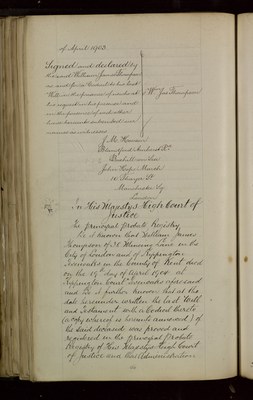 of April 1903.
Signed and declared by
the said William James Thompson
as and for a Codicil to his last
Will in the presence of us who at
his request in his presence and
in the presence of each other
have hereunto subscribed our
names as witnesses
Wm Jas Thompson
J. M.
Manchester Sq
London
In His Majesty's High Court of
Justice
The principal probate Registry
Be it known that William James
Thompson of 38 Mincing Lane in the
City of London and of
Sevenoaks in the County of Kent died
on the day of April 1904 at
Court Sevenoaks aforesaid
and be it further known that at the
date hereunder written the last Will
and Testament with a Codicil thereto
(a copy whereof is hereunto annexed) of
the said deceased was proved and
registered in the principal Probate
Registry of His Majesty's High Court
of Justice and that Administration